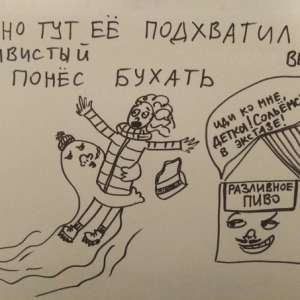 НО ТУТ ЕЁ ПОДХВАТИЛ
ИВИСТЫЙ
ПОНЁС БУХАТЬ
ИДИ КО МНЕ,
ДЕТКА! СОЛЬЁМС
В ЭКСТАЗЕ!
РАЗЛИВНОЕ
ПИВО